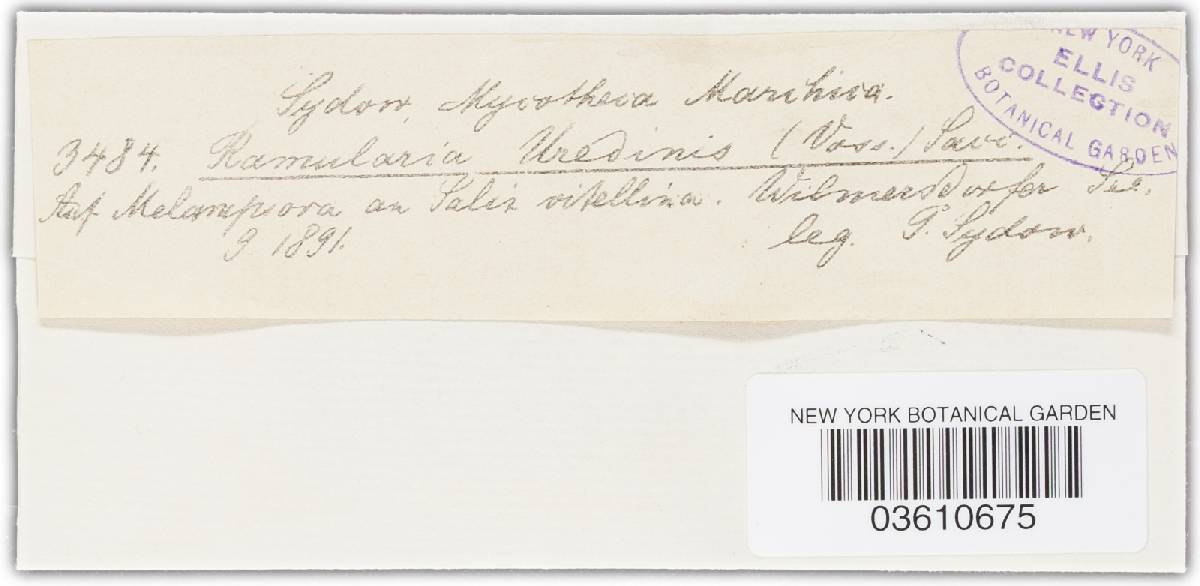 Sydow, Mycotheca Marchica.
3484. Ramularia Uredinis (Voss.) Sacc.
Auf Melampsora an Salix vitellina. Wilmersdorfer See.
9 1891.
leg. P. Sydow.
NEW YORK
ELLIS
COLLECTION
BOTANICAL GARDEN
NEW YORK BOTANICAL GARDEN
03610675